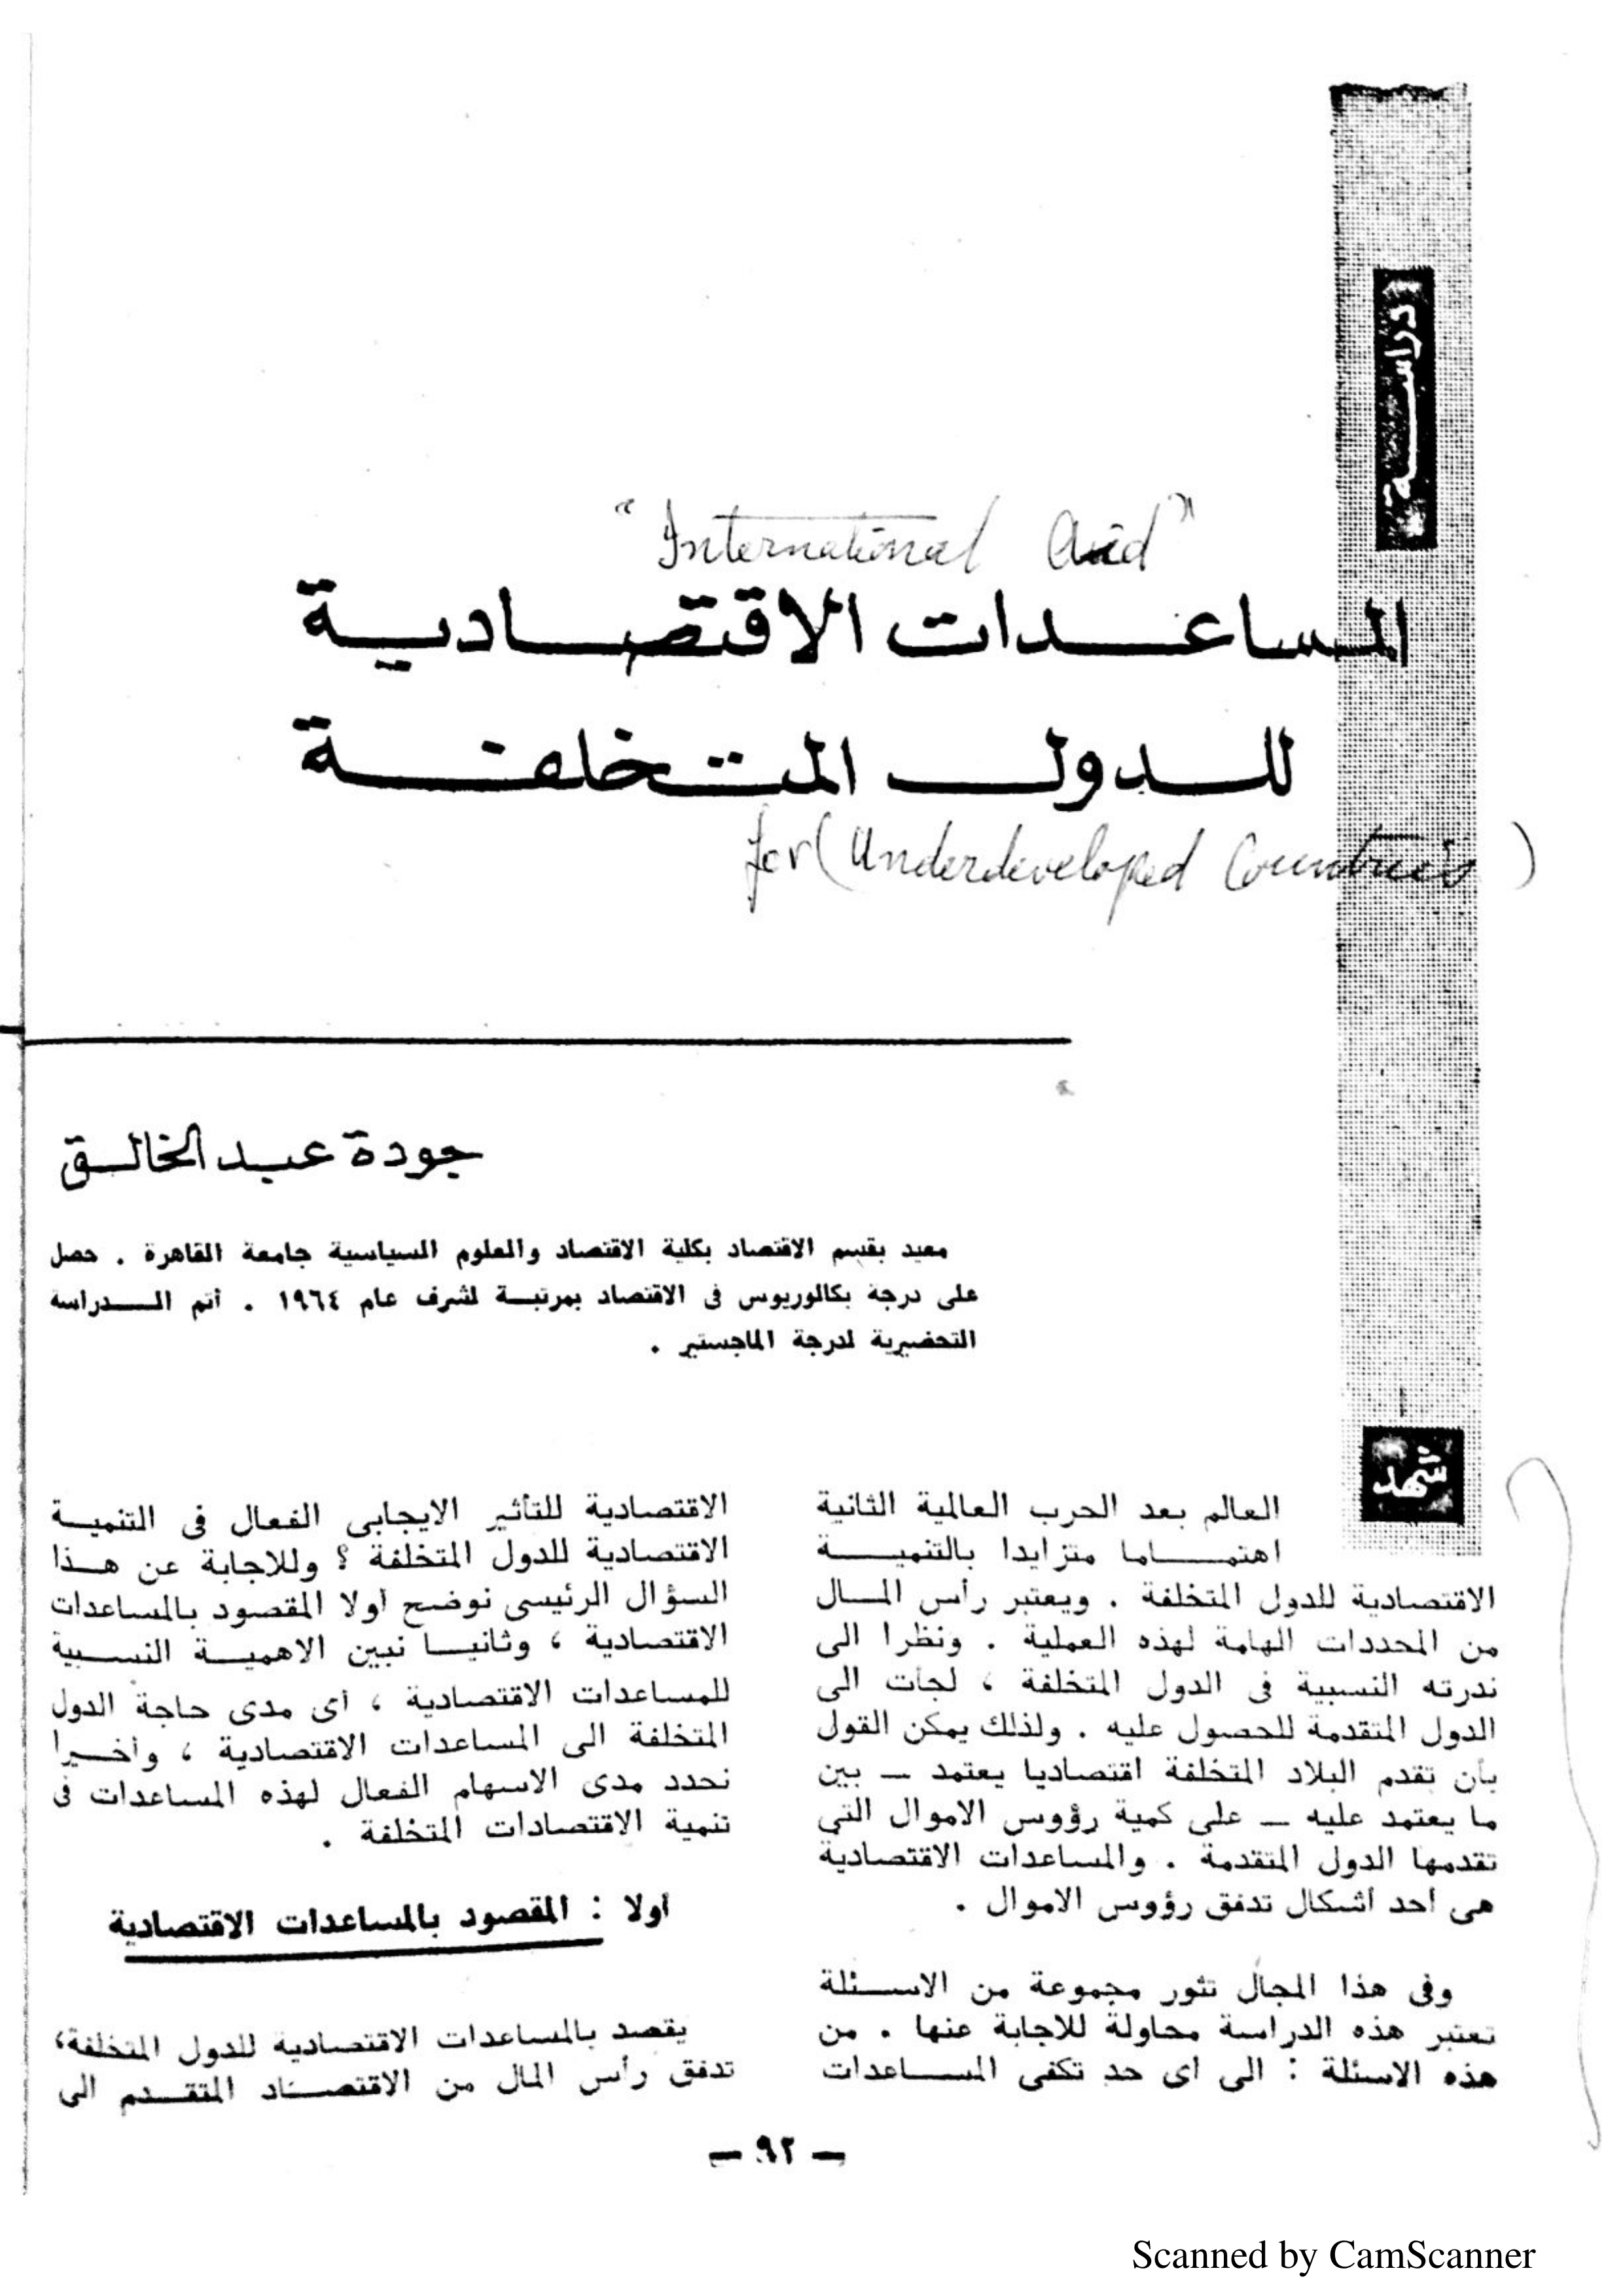 دراسة
"International Aid"
المساعدات الاقتصادية
للدول المتخلفة
for (Underdeveloped Countries)
جودة عبد الخالق
معيد بقسم الاقتصاد بكلية الاقتصاد والعلوم السياسية جامعة القاهرة . حصل
على درجة بكالوريوس فى الاقتصاد بمرتبة لشرف عام ١٩٦٤ . أتم الدراسة
التحضيرية لدرجة الماجستير .
شهد
العالم بعد الحرب العالمية الثانية
اهتماما متزايدا بالتنمية
الاقتصادية للدول المتخلفة . ويعتبر رأس المال
من المحددات الهامة لهذه العملية . ونظرا الى
ندرته النسبية فى الدول المتخلفة ، لجأت الى
الدول المتقدمة للحصول عليه . ولذلك يمكن القول
بأن تقدم البلاد المتخلفة اقتصاديا يعتمد — بين
ما يعتمد عليه — على كمية رؤوس الاموال التي
تقدمها الدول المتقدمة . والمساعدات الاقتصادية
هى أحد أشكال تدفق رؤوس الاموال .
وفى هذا المجال تثور مجموعة من الاسئلة
تعتبر هذه الدراسة محاولة للاجابة عنها . من
هذه الاسئلة : الى أى حد تكفى المساعدات
الاقتصادية للتأثير الايجابى الفعال فى التنمية
الاقتصادية للدول المتخلفة ؟ وللاجابة عن هذا
السؤال الرئيسى نوضح أولا المقصود بالمساعدات
الاقتصادية ، وثانيا نبين الاهمية النسبية
للمساعدات الاقتصادية ، أى مدى حاجة الدول
المتخلفة الى المساعدات الاقتصادية ، وأخيرا
نحدد مدى الاسهام الفعال لهذه المساعدات فى
تنمية الاقتصادات المتخلفة .
أولا : المقصود بالمساعدات الاقتصادية
يقصد بالمساعدات الاقتصادية للدول المتخلفة،
تدفق رأس المال من الاقتصاد المتقدم الى
— ٩٢ —
Scanned by CamScanner